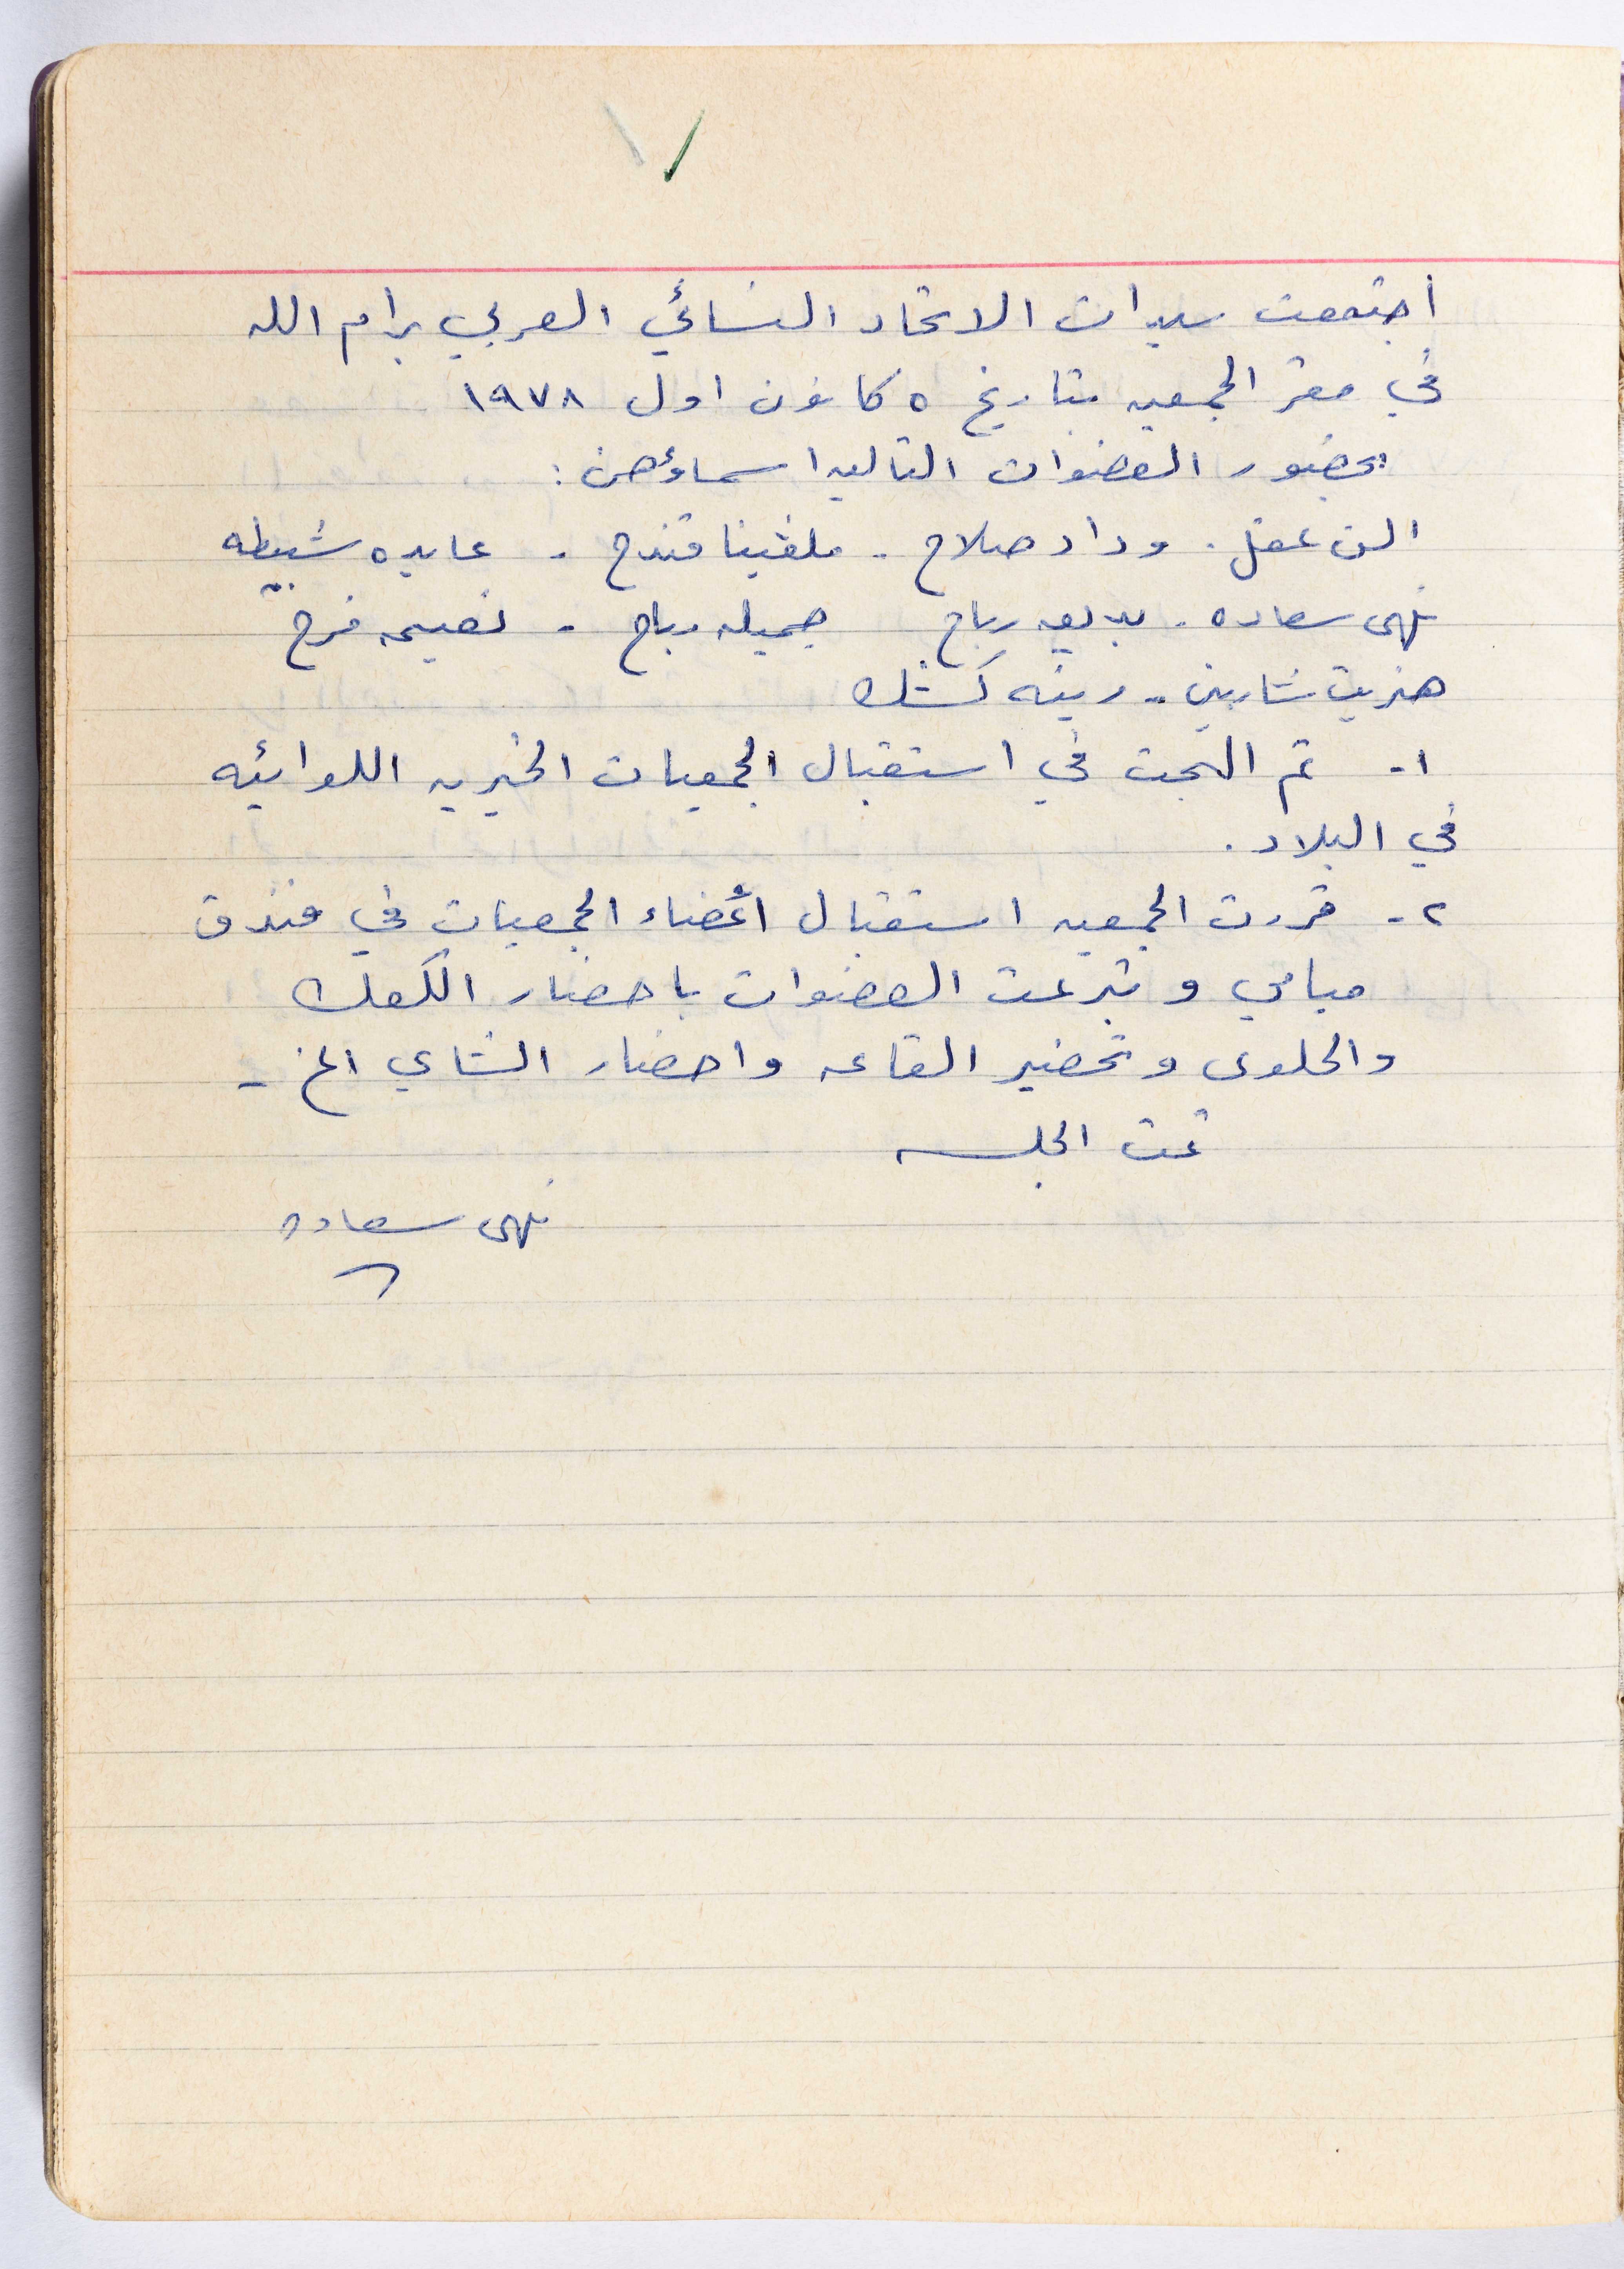 أجتمعت سيدات الاتحاد النسائي العربي برام الله
في مقر الجمعيه بتاريخ ٥ كانون اول ١٩٧٨
بحضور العضوات التاليه اسماؤهن :
الن عقل . وداد صلاح - ملفينا قندح - عايده شبيطه
نهى سعاده . بديعه رباح جميله رباح - نعيمه فرح
هنريت شاربين - رينه كشك
١- تم البحث في استقبال الجمعيات الخيريه اللوائيه
في البلاد .
٢- قررت الجمعيه استقبال أعضاء الجمعيات في فندق
ميامي وتبرعت العضوات باحضار الكعك
والحلوى وتحضير القاعه واحضار الشاي الخ -
تمت الجلسه
نهى سعاده